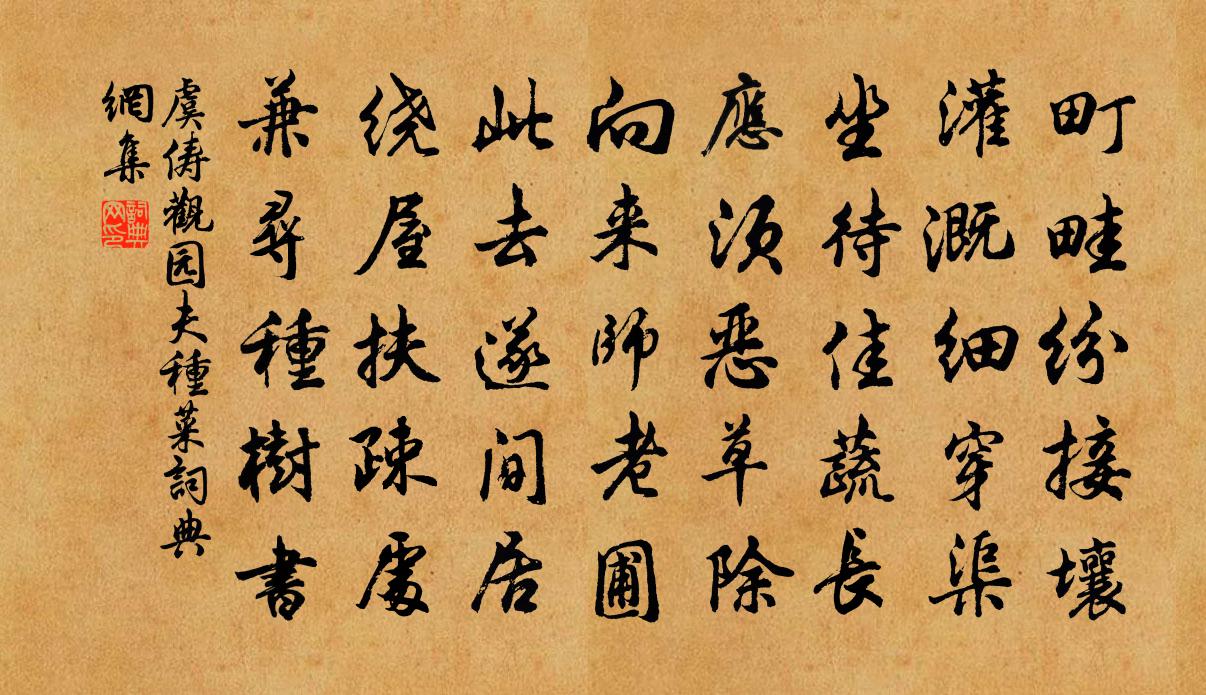 町畦纷接壤
灌溉细穿渠
坐待佳蔬長
應須恶草除
向来師老圃
此去遂间居
绕屋扶疎處
兼尋種樹書
虞俦觀园夫種菜詞典
網集
詞典网印